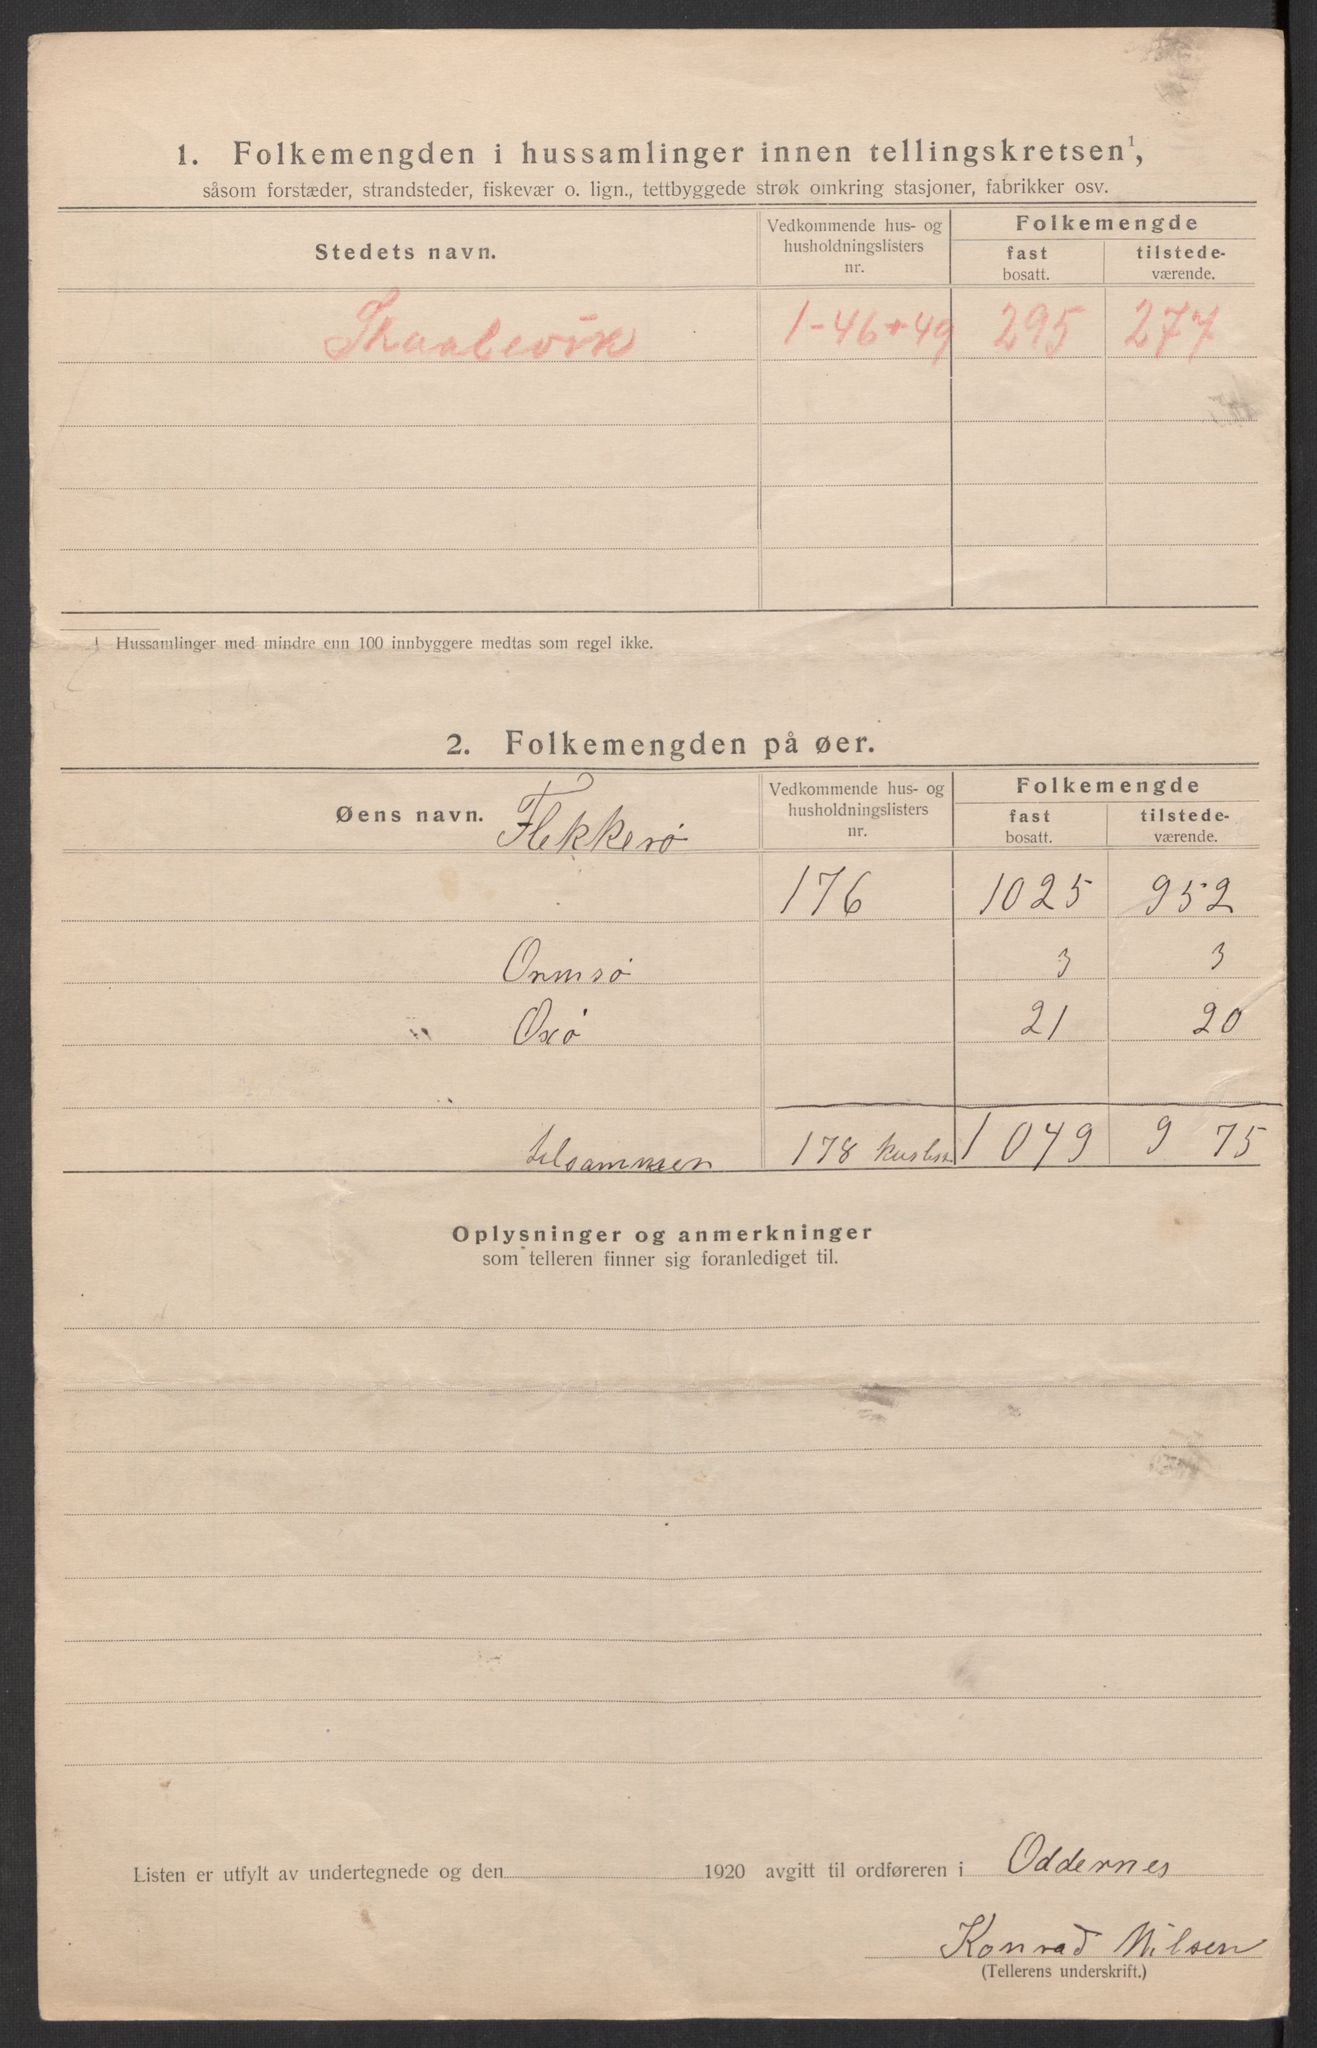 1. Folkemengden i hussamlinger innen tellingskretsen¹,
såsom forstæder, strandsteder, fiskevær o. lign., tettbyggede strøk omkring stasjoner, fabrikker osv.
Stedets navn.
Vedkommende hus- og
husholdningslisters
nr.
Folkemengde
fast
bosatt.
tilstede-
værende.
Skaalevik 1-46+49 295 277
1 Hussamlinger med mindre enn 100 innbyggere medtas som regel ikke.
2. Folkemengden på øer.
Øens navn.
Vedkommende hus- og
husholdningslisters
nr.
Folkemengde
fast
bosatt.
tilstede-
værende.
Flekkerø
176 1025 952
Ormsø 3 3
Oxø 21 20
tilsammen 178 1049 975
Oplysninger og anmerkninger
som telleren finner sig foranlediget til.
Listen er utfylt av undertegnede og den 1920 avgitt til ordføreren i Oddernes
Konrad Nilsen
(Tellerens underskrift.)